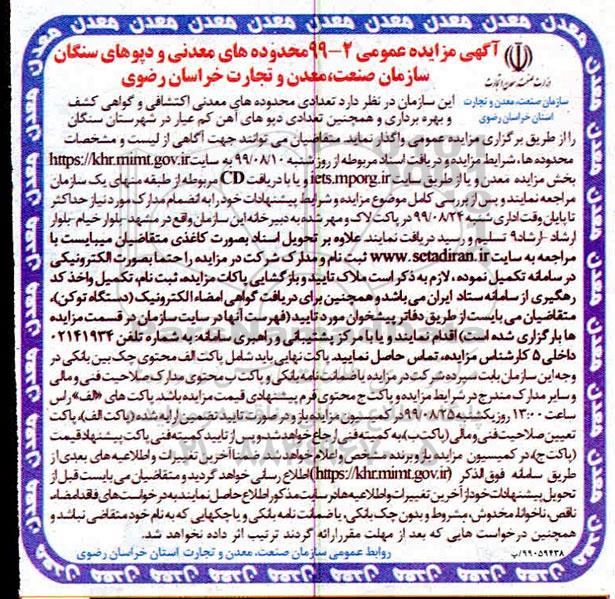 آگهی مزایده عمومی ۲-۹۹محدوده های معدنی و دپوهای سنگان
سازمان صنعت،معدن و تجارت خراسان رضوی
وزارت صنعت، معدن و تجارت
سازمان صنعت، معدن و تجارت
استان خراسان رضوی
این سازمان در نظر دارد تعدادی محدوده های معدنی اکتشافی و گواهی کشف
و بهره برداری و همچنین تعدادی دپو های آهن کم عیار در شهرستان سنگان
را از طریق برگزاری مزایده عمومی واگذار نماید متقاضیان می توانند جهت آگاهی از لیست و مشخصات
محدوده ها، شرایط مزایده و دریافت اسناد مربوطه از روز شنبه ۹۹/۰۸/۱۰ به سایت https://khr.mimt.gov.ir
بخش مزایده معدن و یا از طریق سایت iets.mporg.ir و یا با دریافت CD مربوطه از طبقه منهای یک سازمان
مراجعه نمایند و پس از بررسی کامل موضوع مزایده و شرایط پیشنهادات خود را به انضمام مدارک مورد نیاز حداکثر
تا پایان وقت اداری شنبه ۹۹/۰۸/۲۴ در پاکت لاک و مهر شده به دبیرخانه این سازمان واقع در مشهد-بلوار خیام-بلوار
ارشاد -ارشاد۹ تسلیم و رسید دریافت نمایند علاوه بر تحویل اسناد بصورت کاغذی متقاضیان میبایست با
مراجعه به سایت www.setadiran.ir ثبت نام و مدارک شرکت در مزایده را حتما بصورت الکترونیکی
در سامانه تکمیل نموده، لازم به ذکر است ملاک تایید و بازگشایی پاکات مزایده، ثبت نام، تکمیل واخذ کد
رهگیری از سامانه ستاد ایران می باشد و همچنین برای دریافت گواهی امضاء الکترونیک (دستگاه توکن)،
متقاضیان می بایست از طریق دفاتر پیشخوان مورد تایید (فهرست آنها در سایت سازمان در قسمت مزایده
ها بارگزاری شده است) اقدام نمایند و یا با مرکز پشتیبانی و راهبری سامانه: به شماره تلفن ۰۲۱۴۱۹۳۴
داخلی ۵ کارشناس مزایده، تماس حاصل نمایید. پاکت نهایی باید شامل پاکت الف محتوی چک بین بانکی در
وجه این سازمان بابت سپرده شرکت در مزایده یا ضمانت نامه بانکی و پاکت ب محتوی مدارک صلاحیت فنی و مالی
و سایر مدارک مندرج در شرایط مزایده و پاکت ج محتوی فرم پیشنهادی قیمت مزایده باشد. پاکت های «الف» راس
ساعت ۱۳:۰۰ روز یکشنبه ۹۹/۰۸/۲۵ در کمیسیون مزایده باز و در صورت تایید تضمین ارایه شده (پاکت الف)، پاکت
تعیین صلاحیت فنی و مالی (پاکت ب)، به کمیته فنی ارجاع خواهد شد و پس از تایید کمیته فنی پاکت پیشنهاد قیمت
(پاکت ج)، در کمیسیون مزایده باز و برنده مشخص و اعلام خواهد شد. ضمنا آخرین تغییرات و اطلاعیه های بعدی از
طریق سامانه فوق الذکر (https://khr.mimt.gov.ir) اطلاع رسانی خواهد گردید و متقاضیان می بایست قبل از
تحویل پیشنهادات خود از آخرین تغییرات و اطلاعیه ها در سایت مذکور اطلاع حاصل نمایند به درخواست های فاقد امضاء
ناقص، ناخوانا، مخدوش، مشروط و بدون چک بانکی، یا ضمانت نامه بانکی و یا چکهایی که به نام خود متقاضی نباشد و
همچنین درخواست هایی که بعد از مهلت مقرر ارائه گردند ترتیب اثر داده نخواهد شد.
روابط عمومی سازمان صنعت، معدن و تجارت استان خراسان رضوی
۹۹۰۵۹۴۳۸/پ